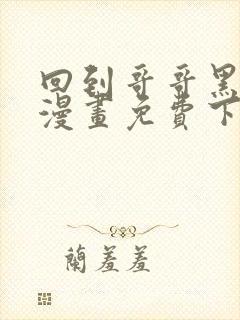 回到哥哥黑
漫畫免費下
蘭羞羞